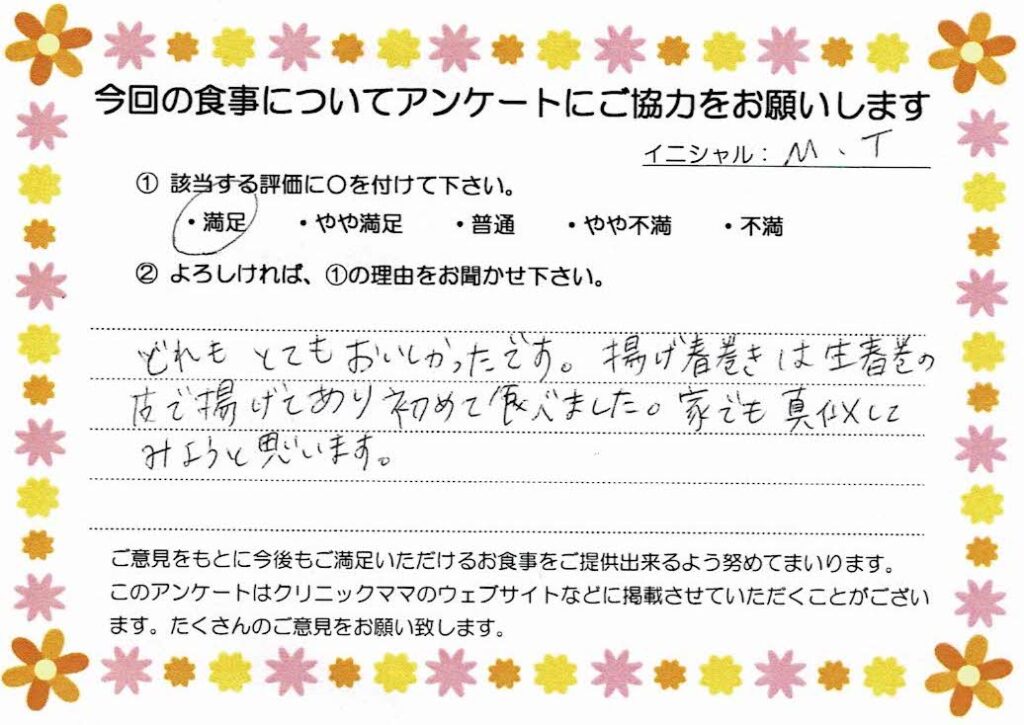 今回の食事についてアンケートにご協力をお願いします
イニシャル： M、T
① 該当する評価に〇を付けて下さい。
・満足 ・やや満足 ・普通 ・やや不満 ・不満
② よろしければ、①の理由をお聞かせ下さい。
どれも とても おいしかったです。揚げ春巻きは生春巻の
皮で揚げてあり初めて食べました。家でも真似して
みようと思います。
ご意見をもとに今後もご満足いただけるお食事をご提供出来るよう努めてまいります。
このアンケートはクリニックママのウェブサイトなどに掲載させていただくことがござい
ます。たくさんのご意見をお願い致します。